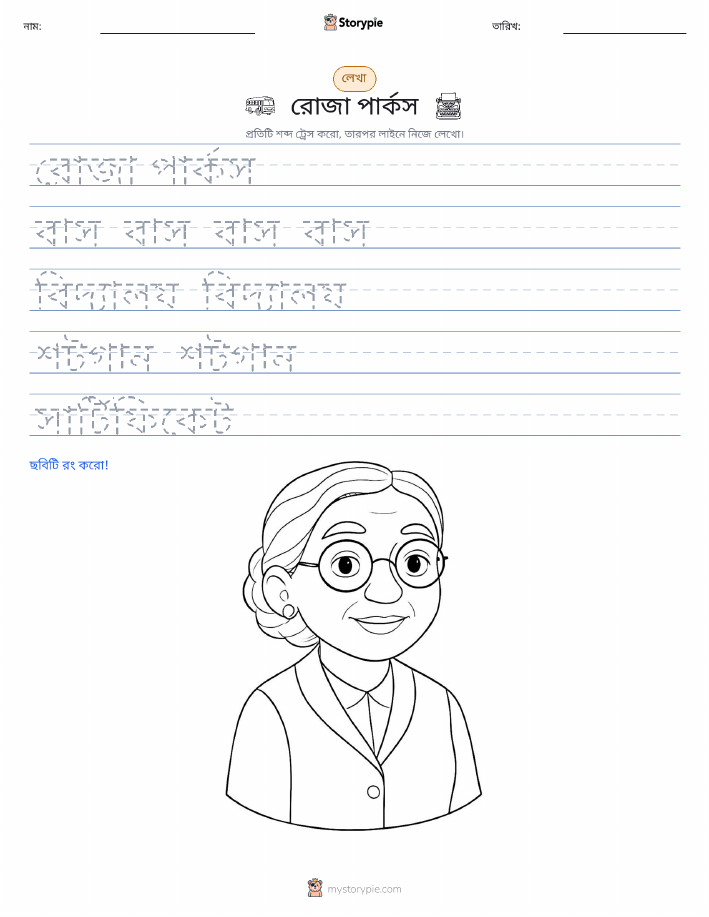 নাম:
Storypie
তারিখ:
লেখা
রোজা পার্কস
প্রতিটি শব্দ ট্রেস করো, তারপর লাইনে নিজে লেখো।
রোজা পার্কস
বাস বাস বাস বাস
বিদ্যালয় বিদ্যালয়
শটগান শটগান
সার্টিফিকেট
ছবিটি রং করো!
mystorypie.com